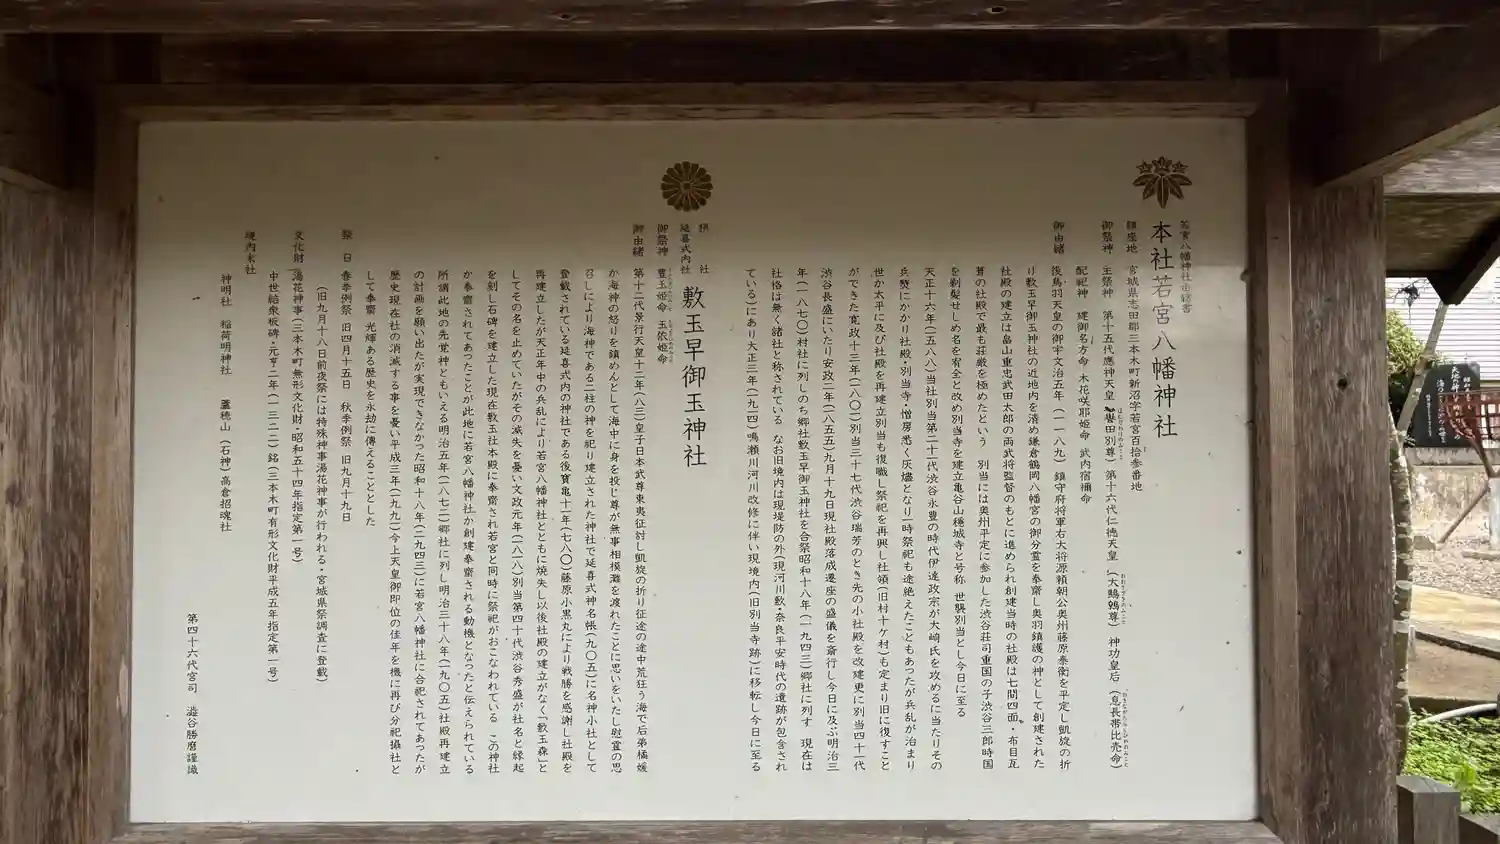 若宮八幡神社由緒書
本社若宮八幡神社
鎮座地 宮城県志田郡三本木町新沼字若宮百拾参番地
御祭神 主祭神 第十五代應神天皇(譽田別尊)第十六代仁徳天皇(大鷦鷯尊)神功皇后(息長帯比売命)
配祀神 建御名方命 木花咲耶姫命 武内宿禰命
御由緒 後鳥羽天皇の御宇文治五年(一一八九)鎮守府将軍右大将源頼朝公奥州藤原泰衡を平定し凱旋の折
り敷玉早御玉神社の近地内を清め鎌倉鶴岡八幡宮の御分霊を奉齋し奥羽鎮護の神として創建された
社殿の建立は畠山重忠武田太郎の両武将監督のもとに進められ創建当時の社殿は七間四面・布目瓦
葺の社殿で最も荘厳を極めたという 別当には奥州平定に参加した渋谷荘司重国の子渋谷三郎時国
を剃髪せしめ名を宥全と改め別当寺を建立亀谷山穏城寺と号称 世襲別当とし今日に至る
天正十六年(一五八八)当社別当第二十一代渋谷永豊の時代伊達政宗が大崎氏を攻めるに当たりその
兵燹にかかり社殿・別当寺・僧房悉く灰燼となり一時祭祀も途絶えたこともあったが兵乱が治まり
世か太平に及び社殿を再建立別当も復職し祭祀を再興し社領(旧村十ケ村)も定まり旧に復すこと
ができた寛政十三年(一八〇一)別当三十七代渋谷瑞芳のとき先の小社殿を改建更に別当四十一代
渋谷長盛にいたり安政二年(一八五五)九月十九日現社殿落成遷座の盛儀を斎行し今日に及ぶ明治三
年(一八七〇)村社に列しのち郷社敷玉早御玉神社を合祭昭和十八年(一九四三)郷社に列す 現在は
社格は無く諸社と称されている なお旧境内は現堤防の外(現河川敷・奈良平安時代の遺跡が包含され
ている)にあり大正三年(一九一四)鳴瀬川河川改修に伴い現境内(旧別当寺跡)に移転し今日に至る
摂社
延喜式内社 敷玉早御玉神社
御祭神 豊玉姫命 玉依姫命
御由緒 第十二代景行天皇十三年(八三)皇子日本武尊東夷征討し凱旋の折り征途の途中荒狂う海で后弟橘媛
か海神の怒りを鎮めんとして海中に身を投じ尊が無事相模灘を渡れたことに思いをいたし慰霊の思
召しにより海神である二柱の神を祀り建立された神社で延喜式神名帳(九〇五)に名神小社として
登載されている延喜式内の神社である後寶亀十一年(七八〇)藤原小黒丸により戦勝を感謝し社殿を
再建立したが天正年中の兵乱により若宮八幡神社とともに焼失し以後社殿の建立がなく「敷玉森」と
してその名を止めていたがその滅失を憂い文政元年(一八一八)別当第四十代渋谷秀盛が社名と縁起
を刻し石碑を建立した現在敷玉社本殿に奉齋され若宮と同時に祭祀がおこなわれている この神社
か奉齋されてあったことが此地に若宮八幡神社か創建奉齋される動機となったと伝えられている
所謂此地の先覚神ともいえる明治五年(一八七二)郷社に列し明治三十八年(一九〇五)社殿再建立
の計画を願い出たが実現できなかった昭和十八年(一九四三)に若宮八幡神社に合祀されてあったが
歴史現在社の消滅する事を憂い平成三年(一九九一)今上天皇御即位の佳年を機に再び分祀摂社と
して奉齋 光輝ある歴史を永劫に傳えることとした
祭日 春季例祭 旧四月十五日 秋季例祭 旧九月十九日
(旧九月十八日前夜祭には特殊神事湯花神事が行われる・宮城県祭調査に登載)
文化財 湯花神事(三本木町無形文化財・昭和五十四年指定第一号)
中世結衆板碑・元亨二年(一三二二)銘(三本木町有形文化財平成五年指定第一号)
境内末社
神明社 稲荷明神社 蘆穂山(石神)高倉招魂社
第四十六代宮司 澁谷勝麿謹識